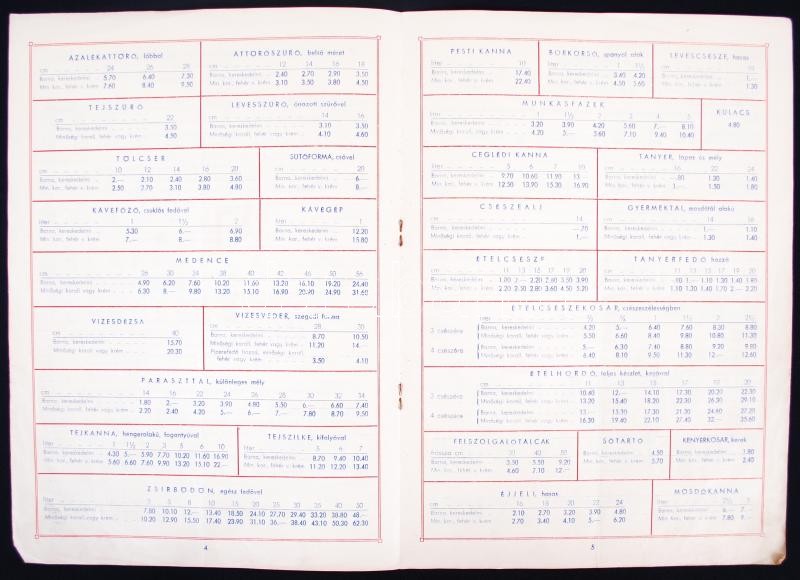 AZALÉKATTÖRŐ, lábbal
cm 24 26 28
Barna, kereskedelmi 5.70 6.40 7.30
Min. kar., fehér v. krém 7.60 8.40 9.50
ÁTTÖRŐSZŰRŐ, belső méret
cm 12 14 16 18
Barna, kereskedelmi 2.40 2.70 2.90 3.50
Min. kor., fehér v. krém 3.10 3.50 3.80 4.50
TEJSZŰRŐ
cm 22
Barna, kereskedelmi 3.50
Minőségi korall, fehér vagy krém 4.50
LEVESSZŰRŐ, órazott szűrővel
cm 14 16
Barna, kereskedelmi 3.10 3.50
Minőségi korall, fehér vagy krém 4.10 4.60
TÖLCSÉR
cm 10 12 14 16 20
Barna, kereskedelmi 2.— 2.10 2.40 2.80 3.60
Min. kor., fehér v. krém 2.50 2.70 3.10 3.80 4.80
SÜTŐFORMA, csővel
cm 20
Barna, kereskedelmi 6.—
Min. kor., fehér v. krém 8.—
KÁVÉFŐZŐ, csuklós fedővel
liter 1 1½ 2
Barna, kereskedelmi 5.30 6.— 6.90
Min. kor., fehér v. krém 7.— 8.— 8.80
KÁVÉGÉP
liter 1
Barna, kereskedelmi 12.20
Min. kor., fehér v. krém 15.80
MEDENCE
cm 26 30 34 38 40 42 46 50 56
Barna, kereskedelmi 4.90 6.20 7.60 10.20 11.60 13.20 16.10 19.20 24.40
Minőségi korall vagy krém 6.30 8.— 9.80 13.20 15.10 16.90 20.90 24.90 31.60
VIZESDÉZSA
cm 40
Barna, kereskedelmi 15.70
Minőségi korall vagy krém 20.30
VIZESVÉDER, szegedi forma
cm 28 30
Barna, kereskedelmi 8.70 10.50
Minőségi korall, fehér vagy krém 11.20 14.—
korall, fehér vagy krém 3.50 4.10
PARASZTTÁL, különleges mély
cm 14 16 18 20 22 24 26 28 30 32 34
Barna, kereskedelmi 1.80 2.— 3.20 3.90 4.80 5.50 6.— 6.60 7.40
Minőségi korall vagy krém 2.20 2.40 4.20 5.— 6.— 7.— 7.80 8.70 9.50
TEJKANNA, hengeralakú, fogantyúval
liter 1 1½ 2 3 5 6 10
Barna, kereskedelmi 4.30 5.— 5.90 7.70 10.20 11.60 16.90
Min. kor., fehér v. krém 5.60 6.60 7.60 9.90 13.20 15.10 22.—
TEJSZILKE, kifolyóval
liter 5 6 7
Barna, kereskedelmi 8.70 9.40 10.40
Min. kor., fehér v. krém 11.20 12.20 13.40
ZSIRBÖDÖN, egész fedővel
liter 3 5 8 10 15 20 25 30 35 40 50
Barna, kereskedelmi 7.80 10.— 12.— 13.40 18.50 24.10 27.70 29.40 33.20 38.80 48.—
Minőségi korall vagy krém 10.20 12.90 15.50 17.40 23.90 31.10 36.— 38.40 43.10 50.30 62.30
4
PESTI KANNA
liter 10
Barna, kereskedelmi 17.40
Min. kor., fehér v. krém 22.40
BORKORSÓ, spanyol alak
liter 1 1½
Barna, kereskedelmi 3.40 4.20
Min. kor., fehér v. krém 4.50 5.60
LEVESCSÉSZE, hasas
cm
Barna, kereskedelmi 1.—
Min. kor., fehér v. krém 1.30
MUNKÁSFAZÉK
liter 1 1½ 2 3 4 5
Barna, kereskedelmi 3.20 3.90 4.20 5.60 7.— 8.10
Minőségi korall, fehér vagy krém 4.20 5.— 5.60 7.10 9.40 10.40
KULACS
4.80
CEGLÉDI KANNA
liter 5 6 7 8 10
Barna, kereskedelmi 9.70 10.60 11.90 13.—
Min. kor., fehér v. krém 12.50 13.90 15.30 16.90
TÁNYÉR, lapos és mély
cm 16 22 24
Barna, kereskedelmi —.80 1.30 1.40
Min. kor., fehér v. krém 1.— 1.50 1.80
CSÉSZEALJ
cm 14
Barna, kereskedelmi —.70
Minőségi korall, fehér vagy krém 1.—
GYERMEKTÁL, mosdótál alakú
cm 14 16
Barna, kereskedelmi 1.— 1.10
Minőségi korall, fehér vagy krém 1.30 1.40
ÉTELCSÉSZE
cm 11 13 15 17 19 20
Min. kor., fehér v. krém 2.20 2.30 2.80 3.60 4.50 5.20
TÁNYÉRFEDŐ hozzá
cm 11 13 15 17 19 20
Min. kor., fehér v. krém 1.10 1.30 1.40 1.70 2.— 2.20
ÉTELCSÉSZEKOSÁR, csészeszélességben
3 csészére Barna, kereskedelmi 4.20 5.— 6.40 7.60 8.30 8.80
Minőségi korall, fehér vagy krém 5.50 6.60 8.40 9.80 10.80 11.30
4 csészére Barna, kereskedelmi 6.30 7.40 8.80 9.20 9.80
Minőségi korall, fehér vagy krém 6.40 8.10 9.50 11.30 12.— 12.60
ÉTELHORDÓ, teljes készlet, kosárral
cm 11 13 15 17 19 20
3 csészére Barna, kereskedelmi 10.60 12.— 14.10 17.30 20.20 22.30
Minőségi korall, fehér vagy krém 13.40 15.40 18.20 22.30 26.30 29.10
4 csészére Barna, kereskedelmi 13.— 15.30 17.30 21.30 24.60 27.20
Minőségi korall, fehér vagy krém 16.30 19.40 22.10 27.40 32.— 35.60
FELSZOLGÁLÓTÁLCÁK
hossza cm 30 40 50
Barna, kereskedelmi 3.50 5.50 9.20
Min. kor., fehér v. krém 4.60 7.10 12.—
SÓTARTÓ
Barna, kereskedelmi 4.50
Min. kor., fehér v. krém 5.70
KENYÉRKOSÁR, kerek
Barna, kereskedelmi 1.80
Min. kor., fehér v. krém 2.40
ÉJJELI, hasas
cm 16 18 20 22 24
Barna, kereskedelmi 2.10 2.70 3.20 3.90 4.80
Min. kor., fehér v. krém 2.70 3.40 4.10 5.— 6.20
MOSDÓKANNA
liter 2½ 3
Barna, kereskedelmi 6.— 7.—
Min. kor., fehér v. krém 7.80 9.—
5